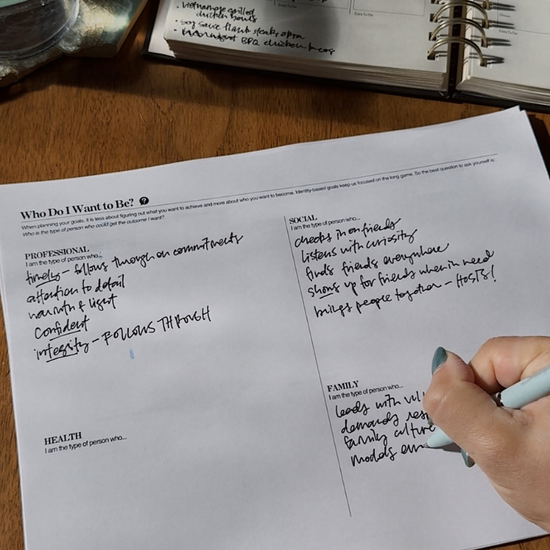 vietnamese grilled
chicken bowls
soy sauce flank steaks
BBQ chicken
Who Do I Want to Be? ?
When planning your goals, it is less about figuring out what you want to achieve and more about who you want to become. Identity-based goals keep us focused on the long game. So the best question to ask yourself is,
Who is the type of person who could get the outcome I want?
PROFESSIONAL
I am the type of person who...
timely - follows through on commitments
attention to detail
warmth & light
confident
integrity - FOLLOWS THROUGH
SOCIAL
I am the type of person who...
checks in on friends
listens with curiosity
finds friends everywhere
shows up for friends when in need
brings people together - HOSTS!
HEALTH
I am the type of person who...
FAMILY
I am the type of person who...
leads with
demands
family culture
models